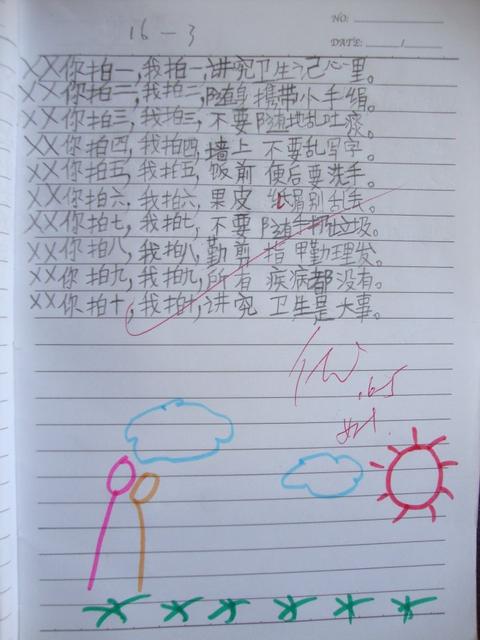 16-3
NO:
DATE: /
XX你拍一,我拍一,讲究卫生记心里。
XX你拍二,我拍二,随身携带小手绢。
XX你拍三,我拍三,不要随地乱吐痰。
XX你拍四,我拍四,墙上不要乱写字。
XX你拍五,我拍五,饭前便后要洗手。
XX你拍六,我拍六,果皮纸屑别乱丢。
XX你拍七,我拍七,不要随手扔垃圾。
XX你拍八,我拍八,勤剪指甲勤理发。
XX你拍九,我拍九,所有疾病都没有。
XX你拍十,我拍十,讲究卫生是大事。
优